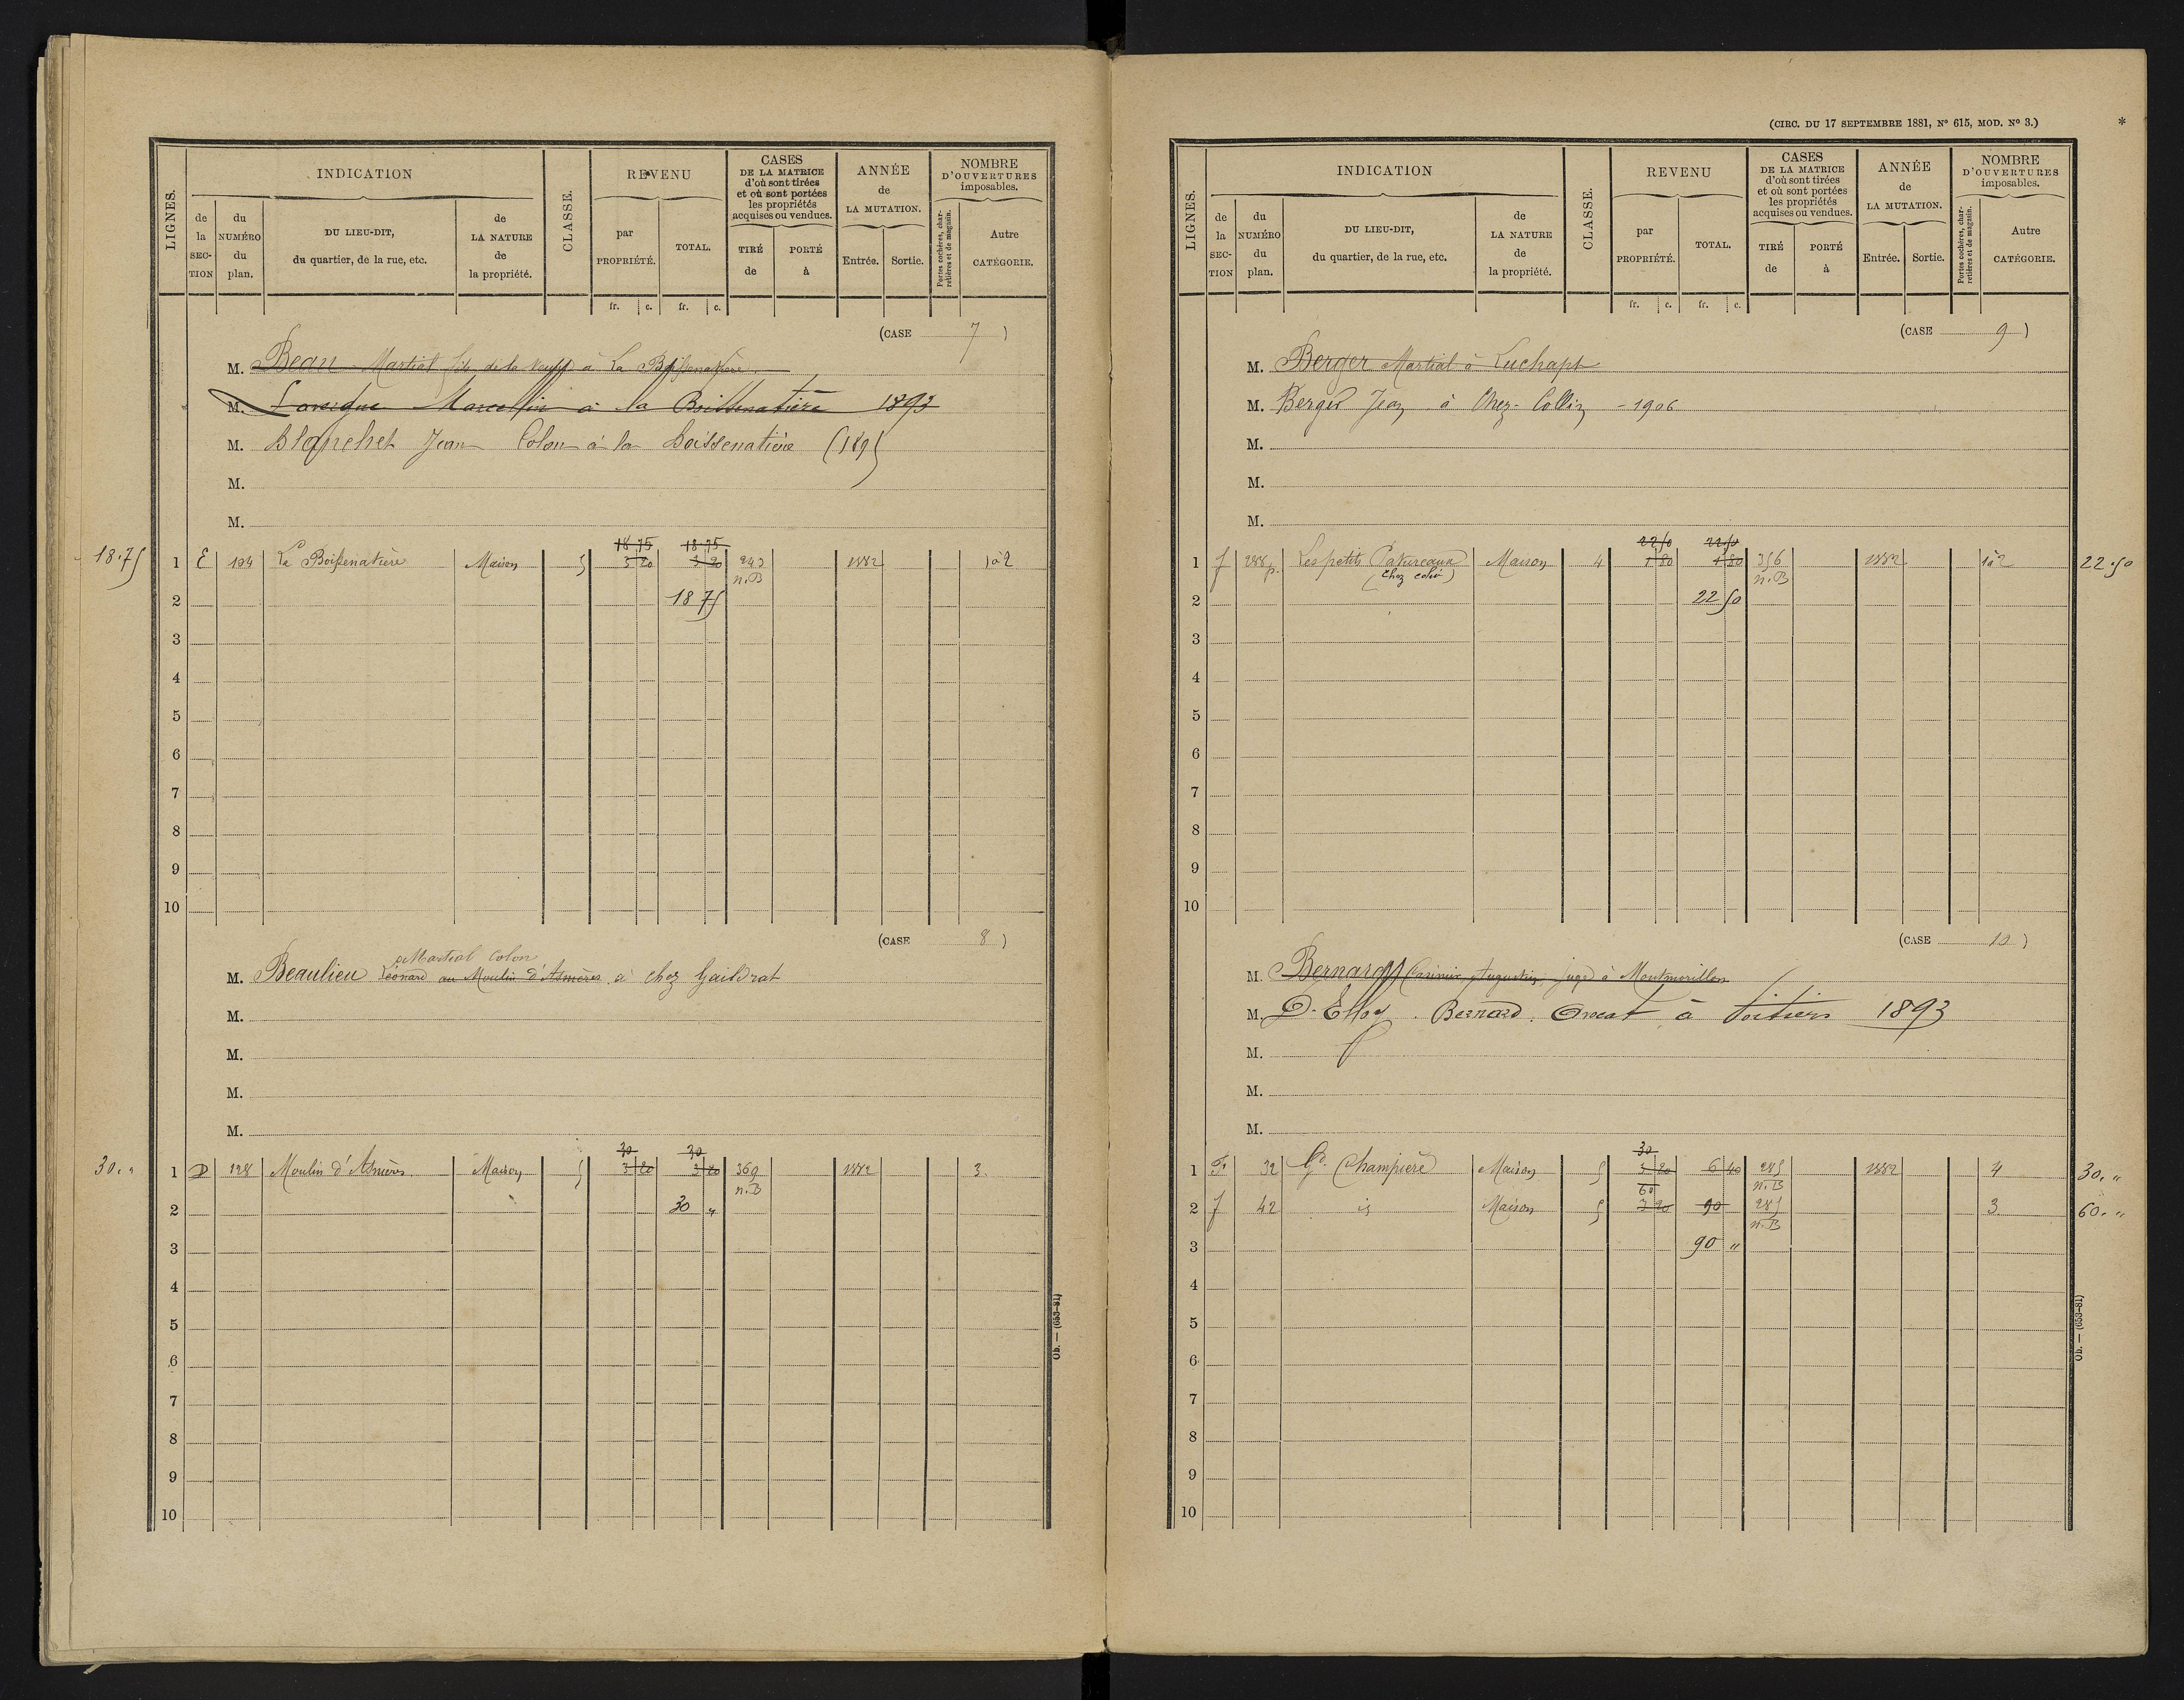 LIGNES.
INDICATION
de la SECTION
du NUMÉRO du plan.
DU LIEU-DIT, du quartier, de la rue, etc.
de LA NATURE de la propriété.
CLASSE.
REVENU
par PROPRIÉTÉ.
TOTAL.
fr. c. fr. c.
CASES
DE LA MATRICE
d'où sont tirées
et où sont portées
les propriétés
acquises ou vendues.
TIRÉ de
PORTÉ à
ANNÉE
de
LA MUTATION.
Entrée. Sortie.
NOMBRE
D'OUVERTURES
imposables.
Portes cochères, charretières et de magasin.
Autre CATÉGORIE.
(CASE 7)
M. Beau Martial fils à La Boissenatière
M. Lavergne Marcellin à la Boissenatière 1893
M. Blanchet Jean Colon à la Boissenatière (1895
M.
M.
18.75 18.75
18.75 1 E 124 La Boissenatière Maison 5 3 20 3 20 242 1882 1 à 2
n.B
2 18 75
3
4
5
6
7
8
9
10
(CASE 8)
Martial Colon
M. Beaulieu Léonard au Moulin d'Asnières à chez Gaildrat
M.
M.
M.
M.
30 30
30. " 1 D 128 Moulin d'Asnières Maison 5 3 20 3 20 369 1882 3
n.B
2 30 "
3
4
5
6
7
8
9
10
Ob. — (653-81)
(CIRC. DU 17 SEPTEMBRE 1881, No 615, MOD. No 3.) *
LIGNES.
INDICATION
de la SECTION
du NUMÉRO du plan.
DU LIEU-DIT, du quartier, de la rue, etc.
de LA NATURE de la propriété.
CLASSE.
REVENU
par PROPRIÉTÉ.
TOTAL.
fr. c. fr. c.
CASES
DE LA MATRICE
d'où sont tirées
et où sont portées
les propriétés
acquises ou vendues.
TIRÉ de
PORTÉ à
ANNÉE
de
LA MUTATION.
Entrée. Sortie.
NOMBRE
D'OUVERTURES
imposables.
Portes cochères, charretières et de magasin.
Autre CATÉGORIE.
(CASE 9)
M. Berger Martial à Luchapt
M. Berger Jean à Chez-Collin - 1906
M.
M.
M.
22 50 22 50
1 f 288 p. Les petits Patureaux Maison 4 1 80 1 80 356 1882 1 à 2 22.50
n.B
2 22 50
3
4
5
6
7
8
9
10
(CASE 10)
M. Bernard Casimir Augustin juge à Montmorillon
M. Bernard. Avocat à Poitiers 1893
M.
M.
M.
30
1 F. 32 Gd. Champière Maison 5 3 20 6 40 285 1882 4 30. "
60 n.B
2 f 42 id Maison 5 3 20 90 285 3 60. "
n.B
3 90 "
4
5
6
7
8
9
10
Ob. — (653-81)